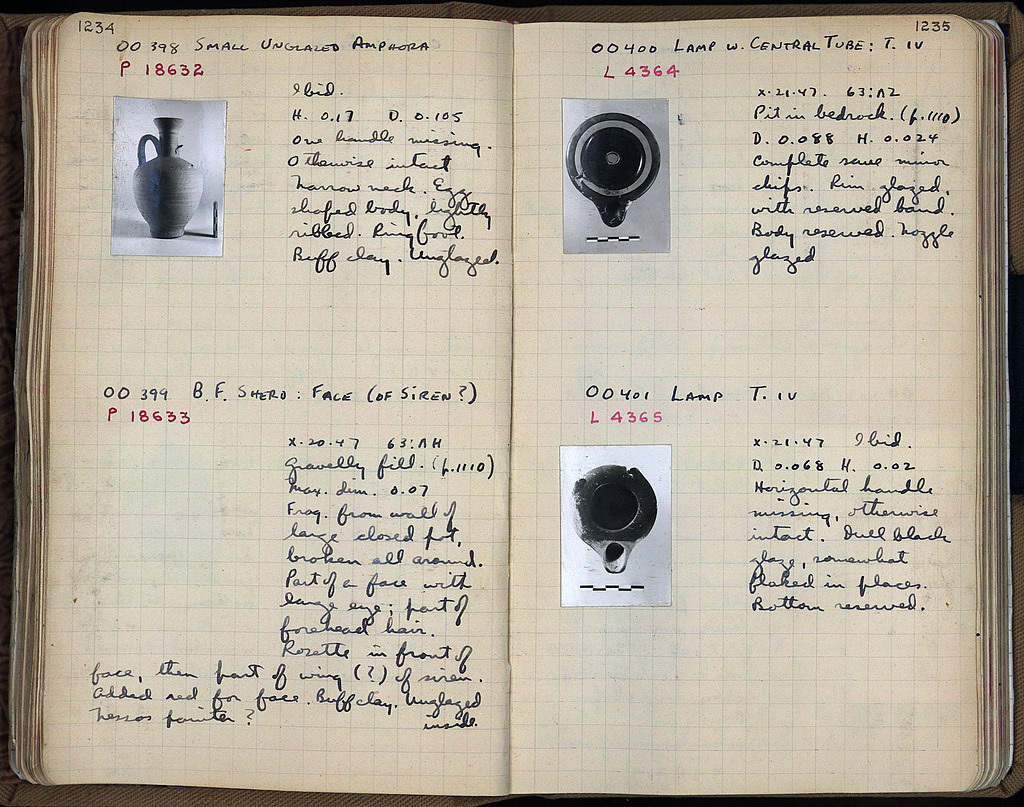 1234
OO 398 SMALL UNGLAZED AMPHORA
P 18632
Ibid.
H. 0.17 D. 0.105
One handle missing.
Otherwise intact
Narrow neck. Egg
shaped body, lightly
ribbed. Ring foot.
Buff clay. Unglazed.
OO 399 B.F. SHERD: FACE (OF SIREN?)
P 18633
X.20.47 63:ΛH
Gravelly fill. (p.1110)
Max. dim. 0.07
Frag. from wall of
large closed pot,
broken all around.
Part of a face with
large eye; part of
forehead hair.
Rosette in front of
face, then part of wing (?) of siren.
Added red for face. Buff clay. Unglazed
Nessos painter? inside.
1235
OO 400 LAMP W. CENTRAL TUBE: T. IV
L 4364
X.21.47. 63:ΛZ
Pit in bedrock. (p.1110)
D. 0.088 H. 0.024
Complete save minor
chips. Rim glazed,
with reserved band.
Body reserved. Nozzle
glazed
OO 401 LAMP T. IV
L 4365
X.21.47 Ibid.
D. 0.068 H. 0.02
Horizontal handle
missing, otherwise
intact. Dull black
glaze, somewhat
flaked in places.
Bottom reserved.